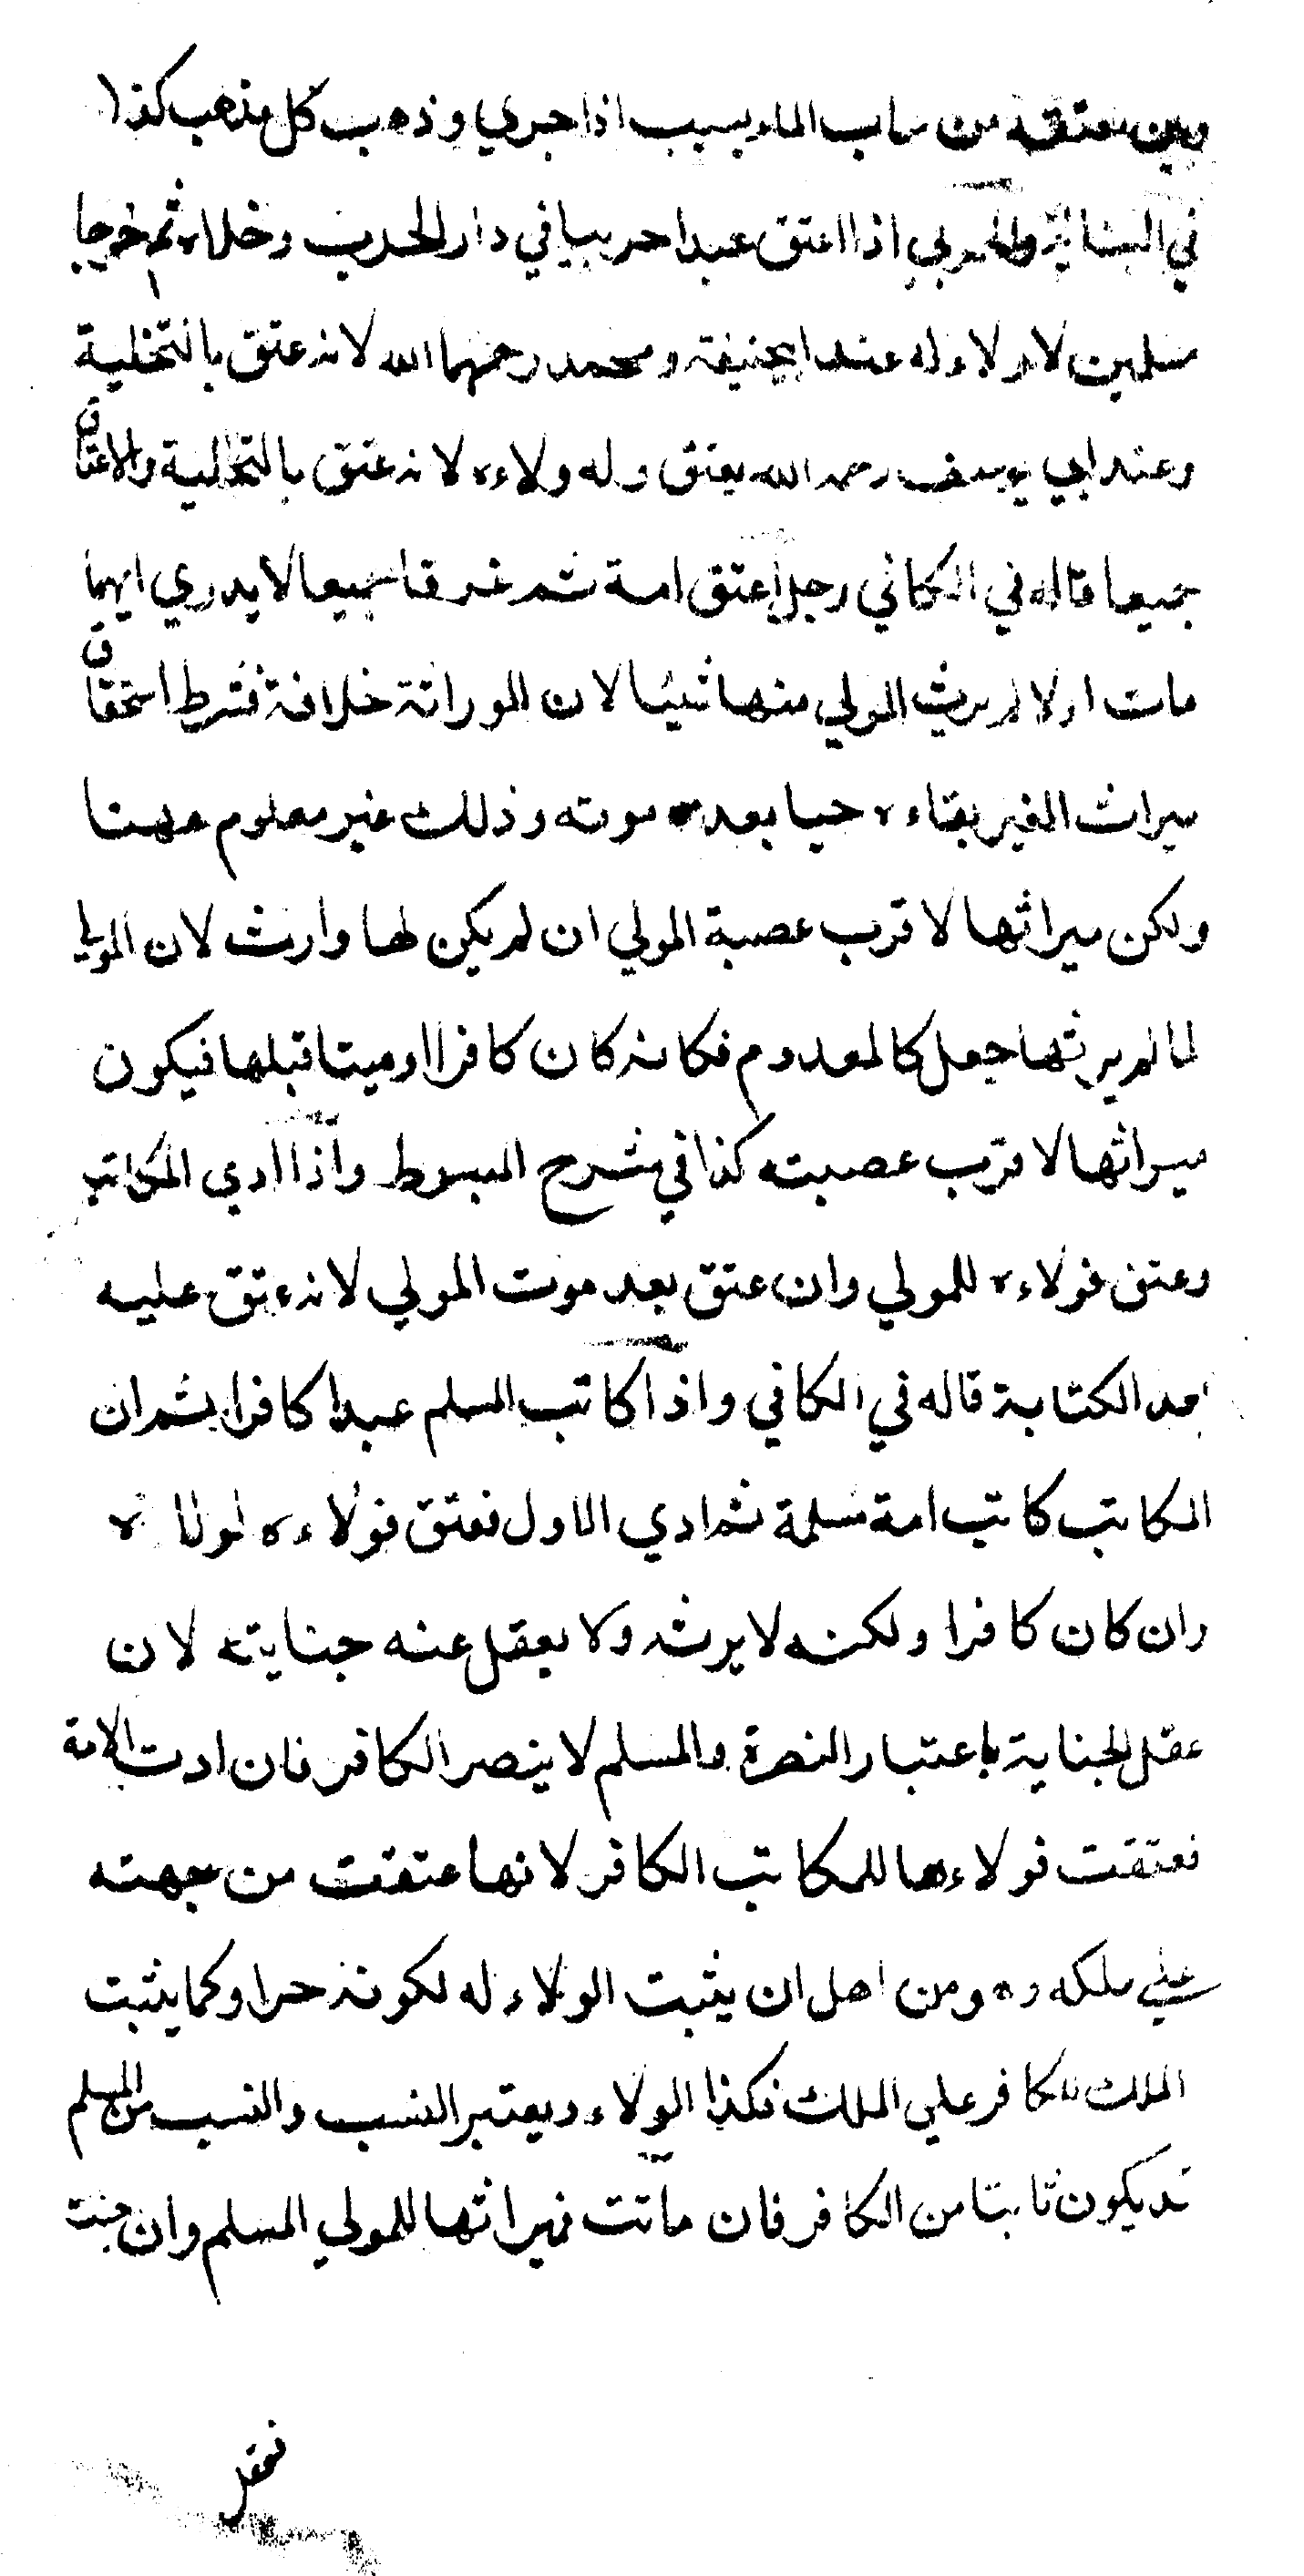 وبين معتقه من ساب الماء يسيب اذا جري وذهب كل مذهب كذا
في البنانية والحربي اذا اعتق عبدا حربيا في دار الحرب وخلاه ثم خرجا
مسلمين لا ولاء له عند ابيحنيفة ومحمد رحمهما الله لانه عتق بالتخلية
وعند ابي يوسف رحمه الله يعتق وله ولاءه لانه عتق بالتخلية والاعتاق
جميعا قاله في الكافي رجل اعتق امة ثم غرقا جميعا لا يدري ايهما
مات اولا لم يرث المولي منها شيئا لان الوراثة خلافة فشرط استحقاق
ميراث الغير بقاءه حيا بعد موته وذلك غير معلوم ههنا
ولكن ميراثها لاقرب عصبة المولي ان لم يكن لها وارث لان المولي
لما لم يرثها جعل كالمعدوم فكانه كان كافرا او ميتا قبلها فيكون
ميراثها لاقرب عصبته كذا في شرح المبسوط واذا ادي المكاتب
وعتق فولاءه للمولي وان عتق بعد موت المولي لانه عتق عليه
بعد الكتابة قاله في الكافي واذا كاتب المسلم عبدا كافرا ثم ان
المكاتب كاتب امة مسلمة ثم ادي الاول فعتق فولاءه لمولاه
وان كان كافرا ولكنه لا يرثه ولا يعقل عنه جنايته لان
عقل الجناية باعتبار النصرة والمسلم لا ينصر الكافر فان ادت الامة
فعتقت فولاءها للمكاتب الكافر لانها عتقت من جهته
علي ملكه وهو من اهل ان يثبت الولاء له لكونه حرا وكما يثبت
الملك للكافر علي الملك فكذا الولاء ويعتبر النسب والنسب من المسلم
قد يكون ثابتا من الكافر فان ماتت فميراثها للمولي المسلم وان جنت
فعقل